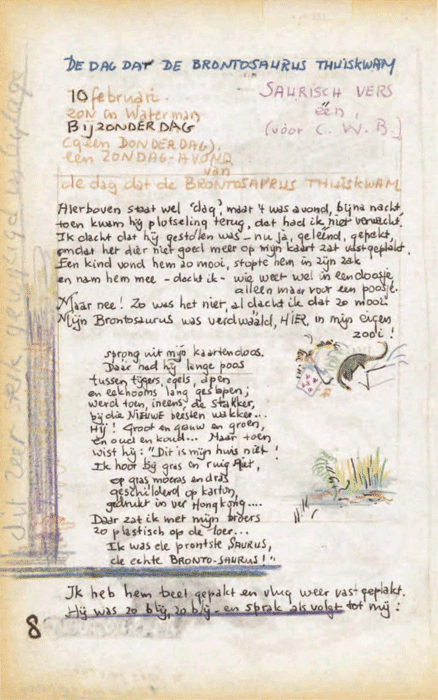 DE DAG DAT DE BRONTOSAURUS THUISKWAM
10 februari.
ZON in Waterman
BIJZONDER DAG
(géén DONDERDAG).
een ZONDAG-AVOND
van
de dag dat de BRONTOSAURUS THUISKWAM
SAURISCH VERS
één,
(vóór C. W. B.)
Hierboven staat wel 'dag', maar 't was avond, bijna nacht
toen kwam hij plotseling terug, dat had ik niet verwacht.
Ik dacht dat hij gestolen was – nu ja, geleend, gepakt,
omdat het dier niet goed meer op mijn kaart zat vastgeplakt.
Een kind vond hem zo mooi, stopte hem in zijn zak
en nam hem mee – dacht ik – wie weet wel in een doosje,
alleen maar voor een poosje.
Maar nee! Zo was het niet, al dacht ik dat zo mooi.
Mijn Brontosaurus was verdwaald, HIER, in mijn eigen
zooi!
sprong uit mijn kaartendoos.
Daar had hij lange poos
tussen tijgers, egels, apen
en eekhoorns lang geslapen;
werd toen, ineens, de stakker,
bij die NIEUWE beesten wakker...
Hij! Groot en grauw en groen,
en oud en koud... Maar toen
wist hij: "Dit is mijn huis niet!
Ik hoor bij gras en ruig riet,
op gras moeras en dras
geschilderd op karton,
gedrukt in ver Hongkong....
Daar zat ik met mijn broers
zo plastisch op de loer...
Ik was de prontste SAURUS,
de echte BRONTO-SAURUS!"
Ik heb hem beet gepakt en vlug weer vast geplakt.
Hij was zo blij, zo blij – en sprak als volgt tot mij:
8
dit zeer sterk gewijzigd in bijlage